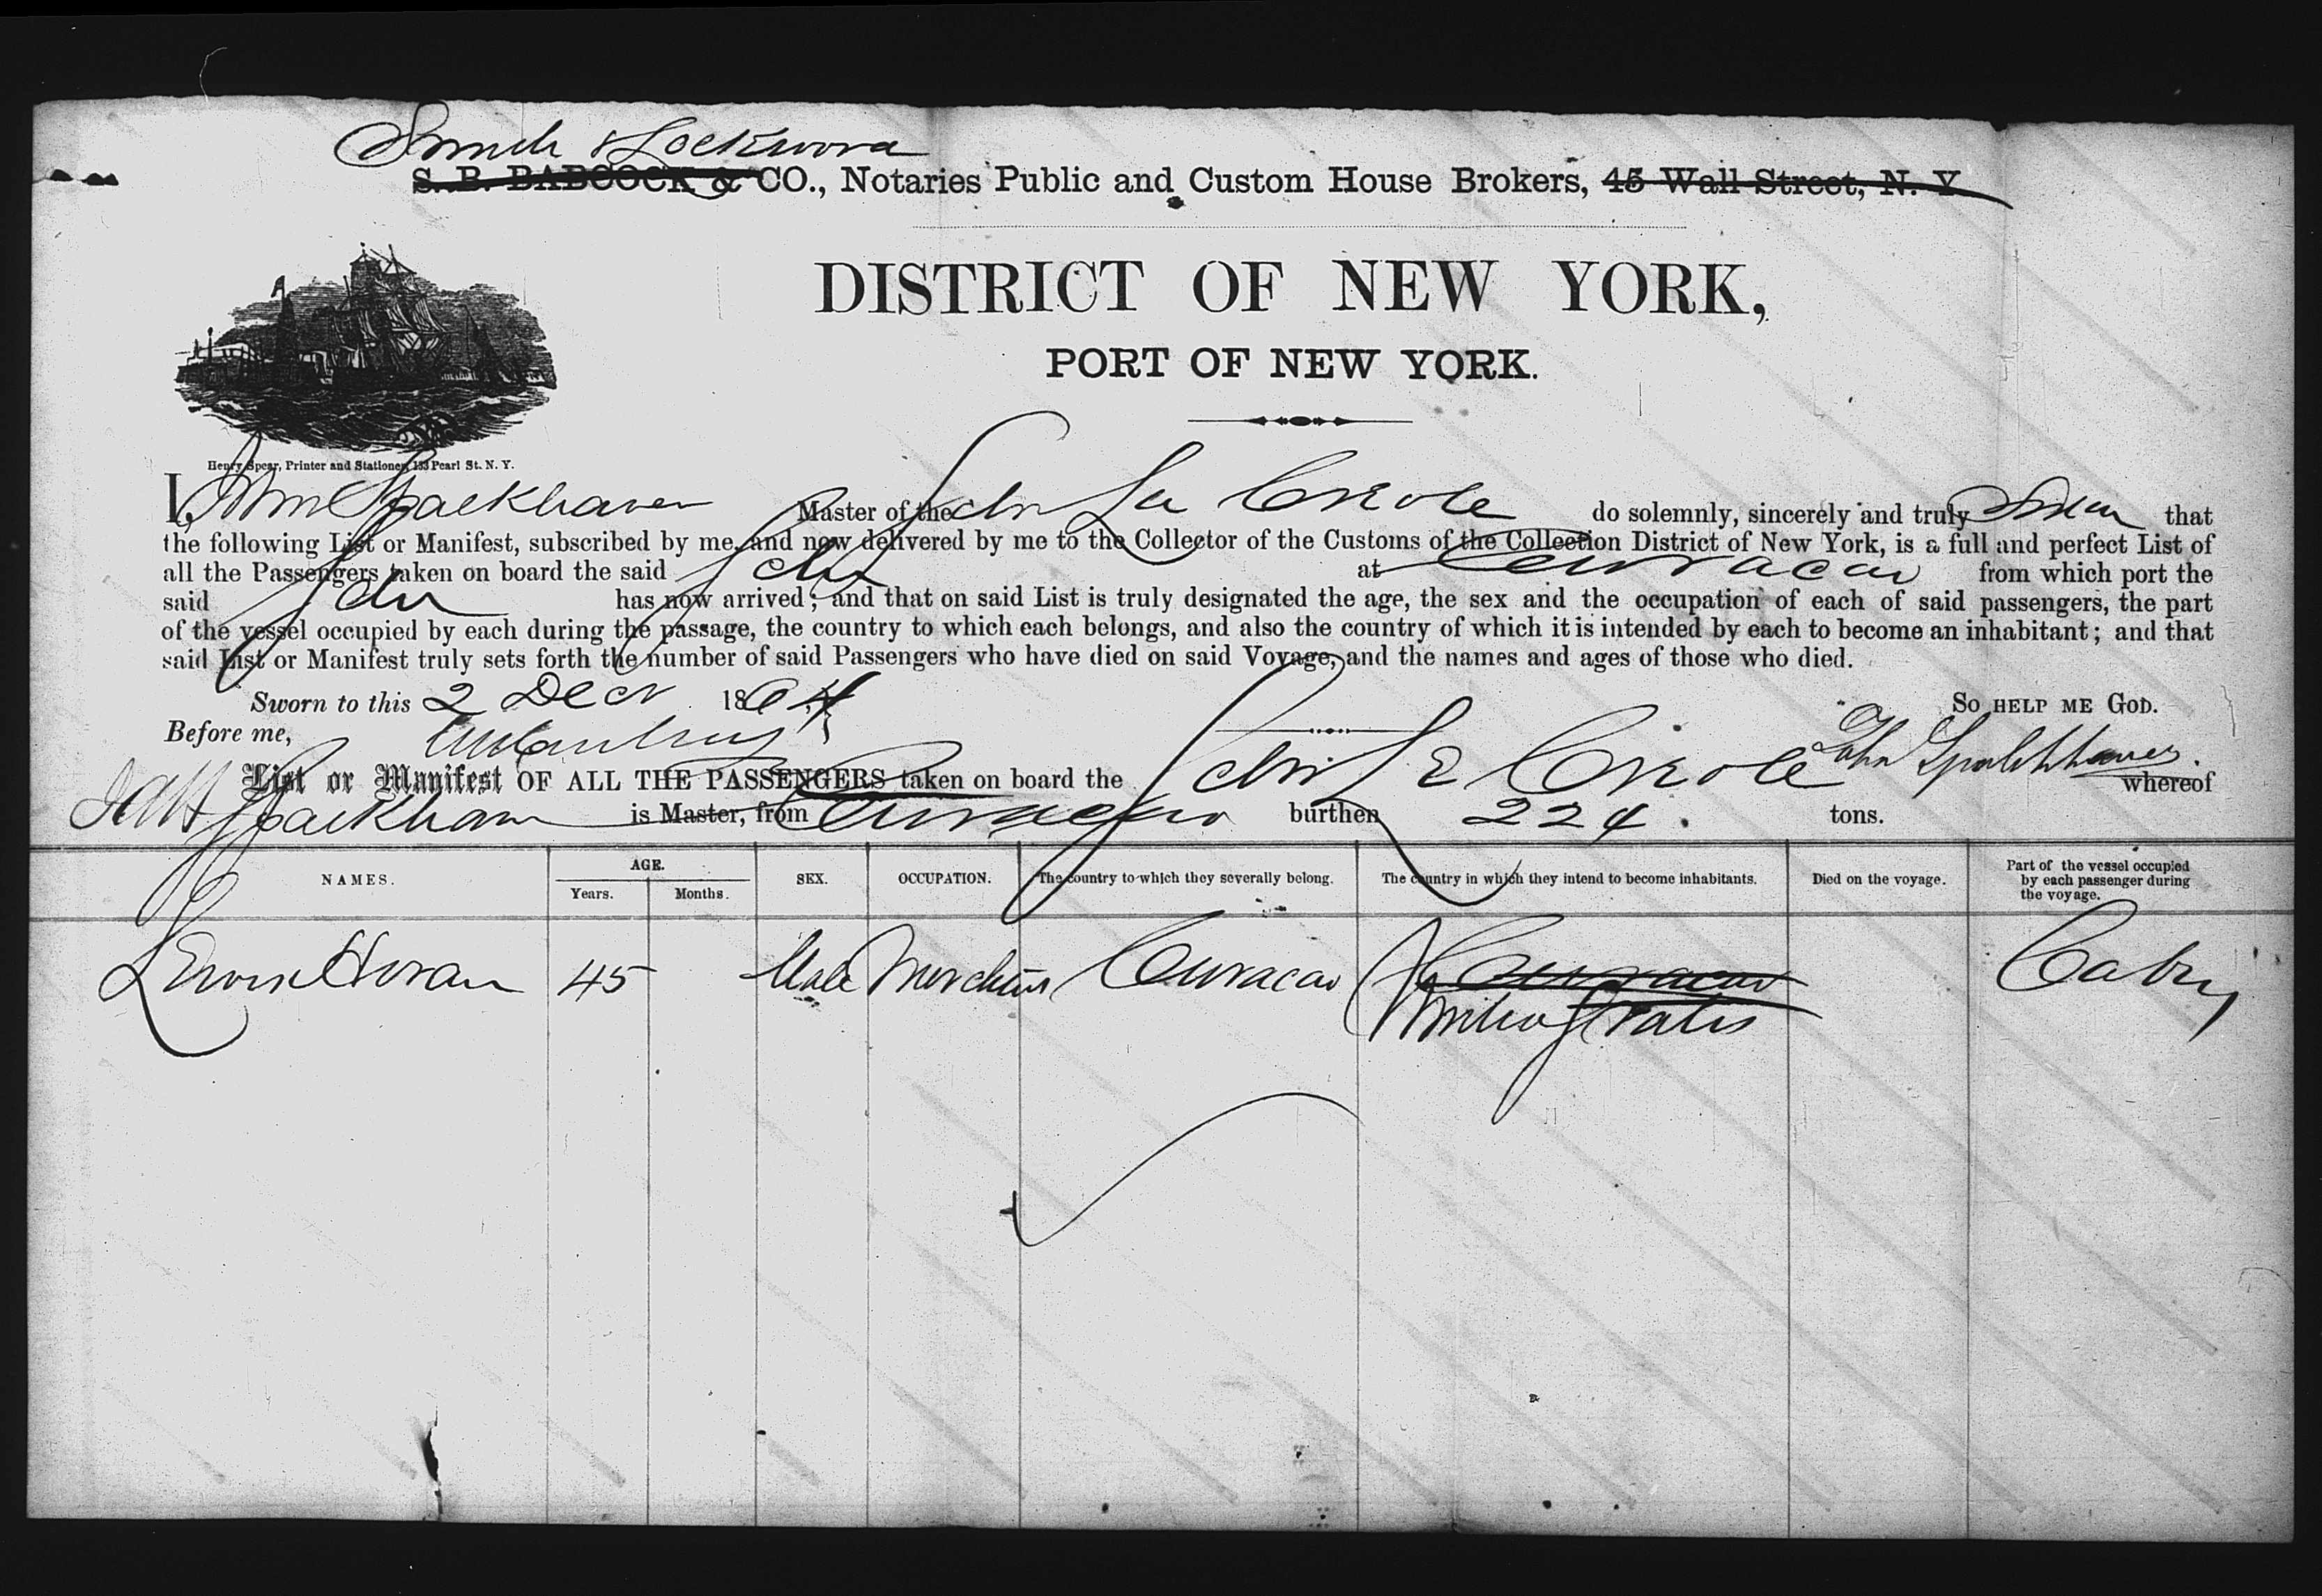 & Lockwood
S. B. BABCOCK & CO., Notaries Public and Custom House Brokers, 45 Wall Street, N. Y.
DISTRICT OF NEW YORK,
PORT OF NEW YORK.
Henry Spear, Printer and Stationer, 133 Pearl St. N. Y.
I, John Master of the Schr La Creole do solemnly, sincerely and truly Swear that
the following List or Manifest, subscribed by me, and now delivered by me to the Collector of the Customs of the Collection District of New York, is a full and perfect List of
all the Passengers taken on board the said Schr at Curracao from which port the
said Schr has now arrived; and that on said List is truly designated the age, the sex and the occupation of each of said passengers, the part
of the vessel occupied by each during the passage, the country to which each belongs, and also the country of which it is intended by each to become an inhabitant; and that
said List or Manifest truly sets forth the number of said Passengers who have died on said Voyage, and the names and ages of those who died.
Sworn to this 2 Decr 1864 SO HELP ME GOD.
Before me, John
List or Manifest OF ALL THE PASSENGERS taken on board the Schr Creole whereof
is Master, from Curracao burthen 224. tons.
NAMES. AGE. Years. Months. SEX. OCCUPATION. The country to which they severally belong. The country in which they intend to become inhabitants. Died on the voyage. Part of the vessel occupied by each passenger during the voyage.
45 Male Merchant Curacao Curracao Cabin
United States